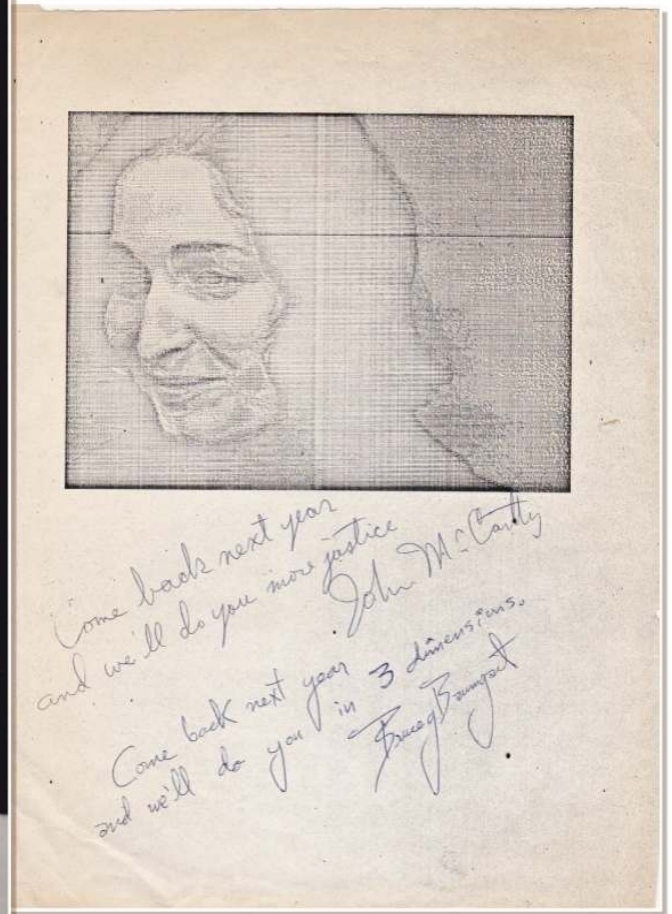 Come back next year
and we'll do you more justice
John McCarthy
Come back next year
and we'll do you in 3 dimensions.
Bruce G Baumgart